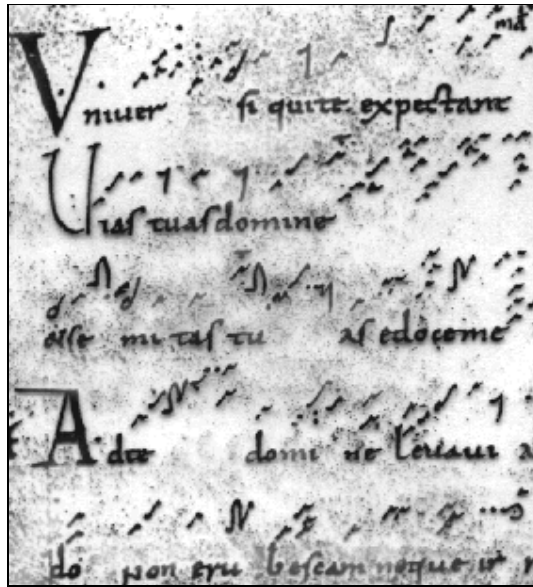 Vniuer si quite expectant
Uias tuas domine
mi tas tu as edoceme
Adte domi ne leuaui a
non eru bescam neque